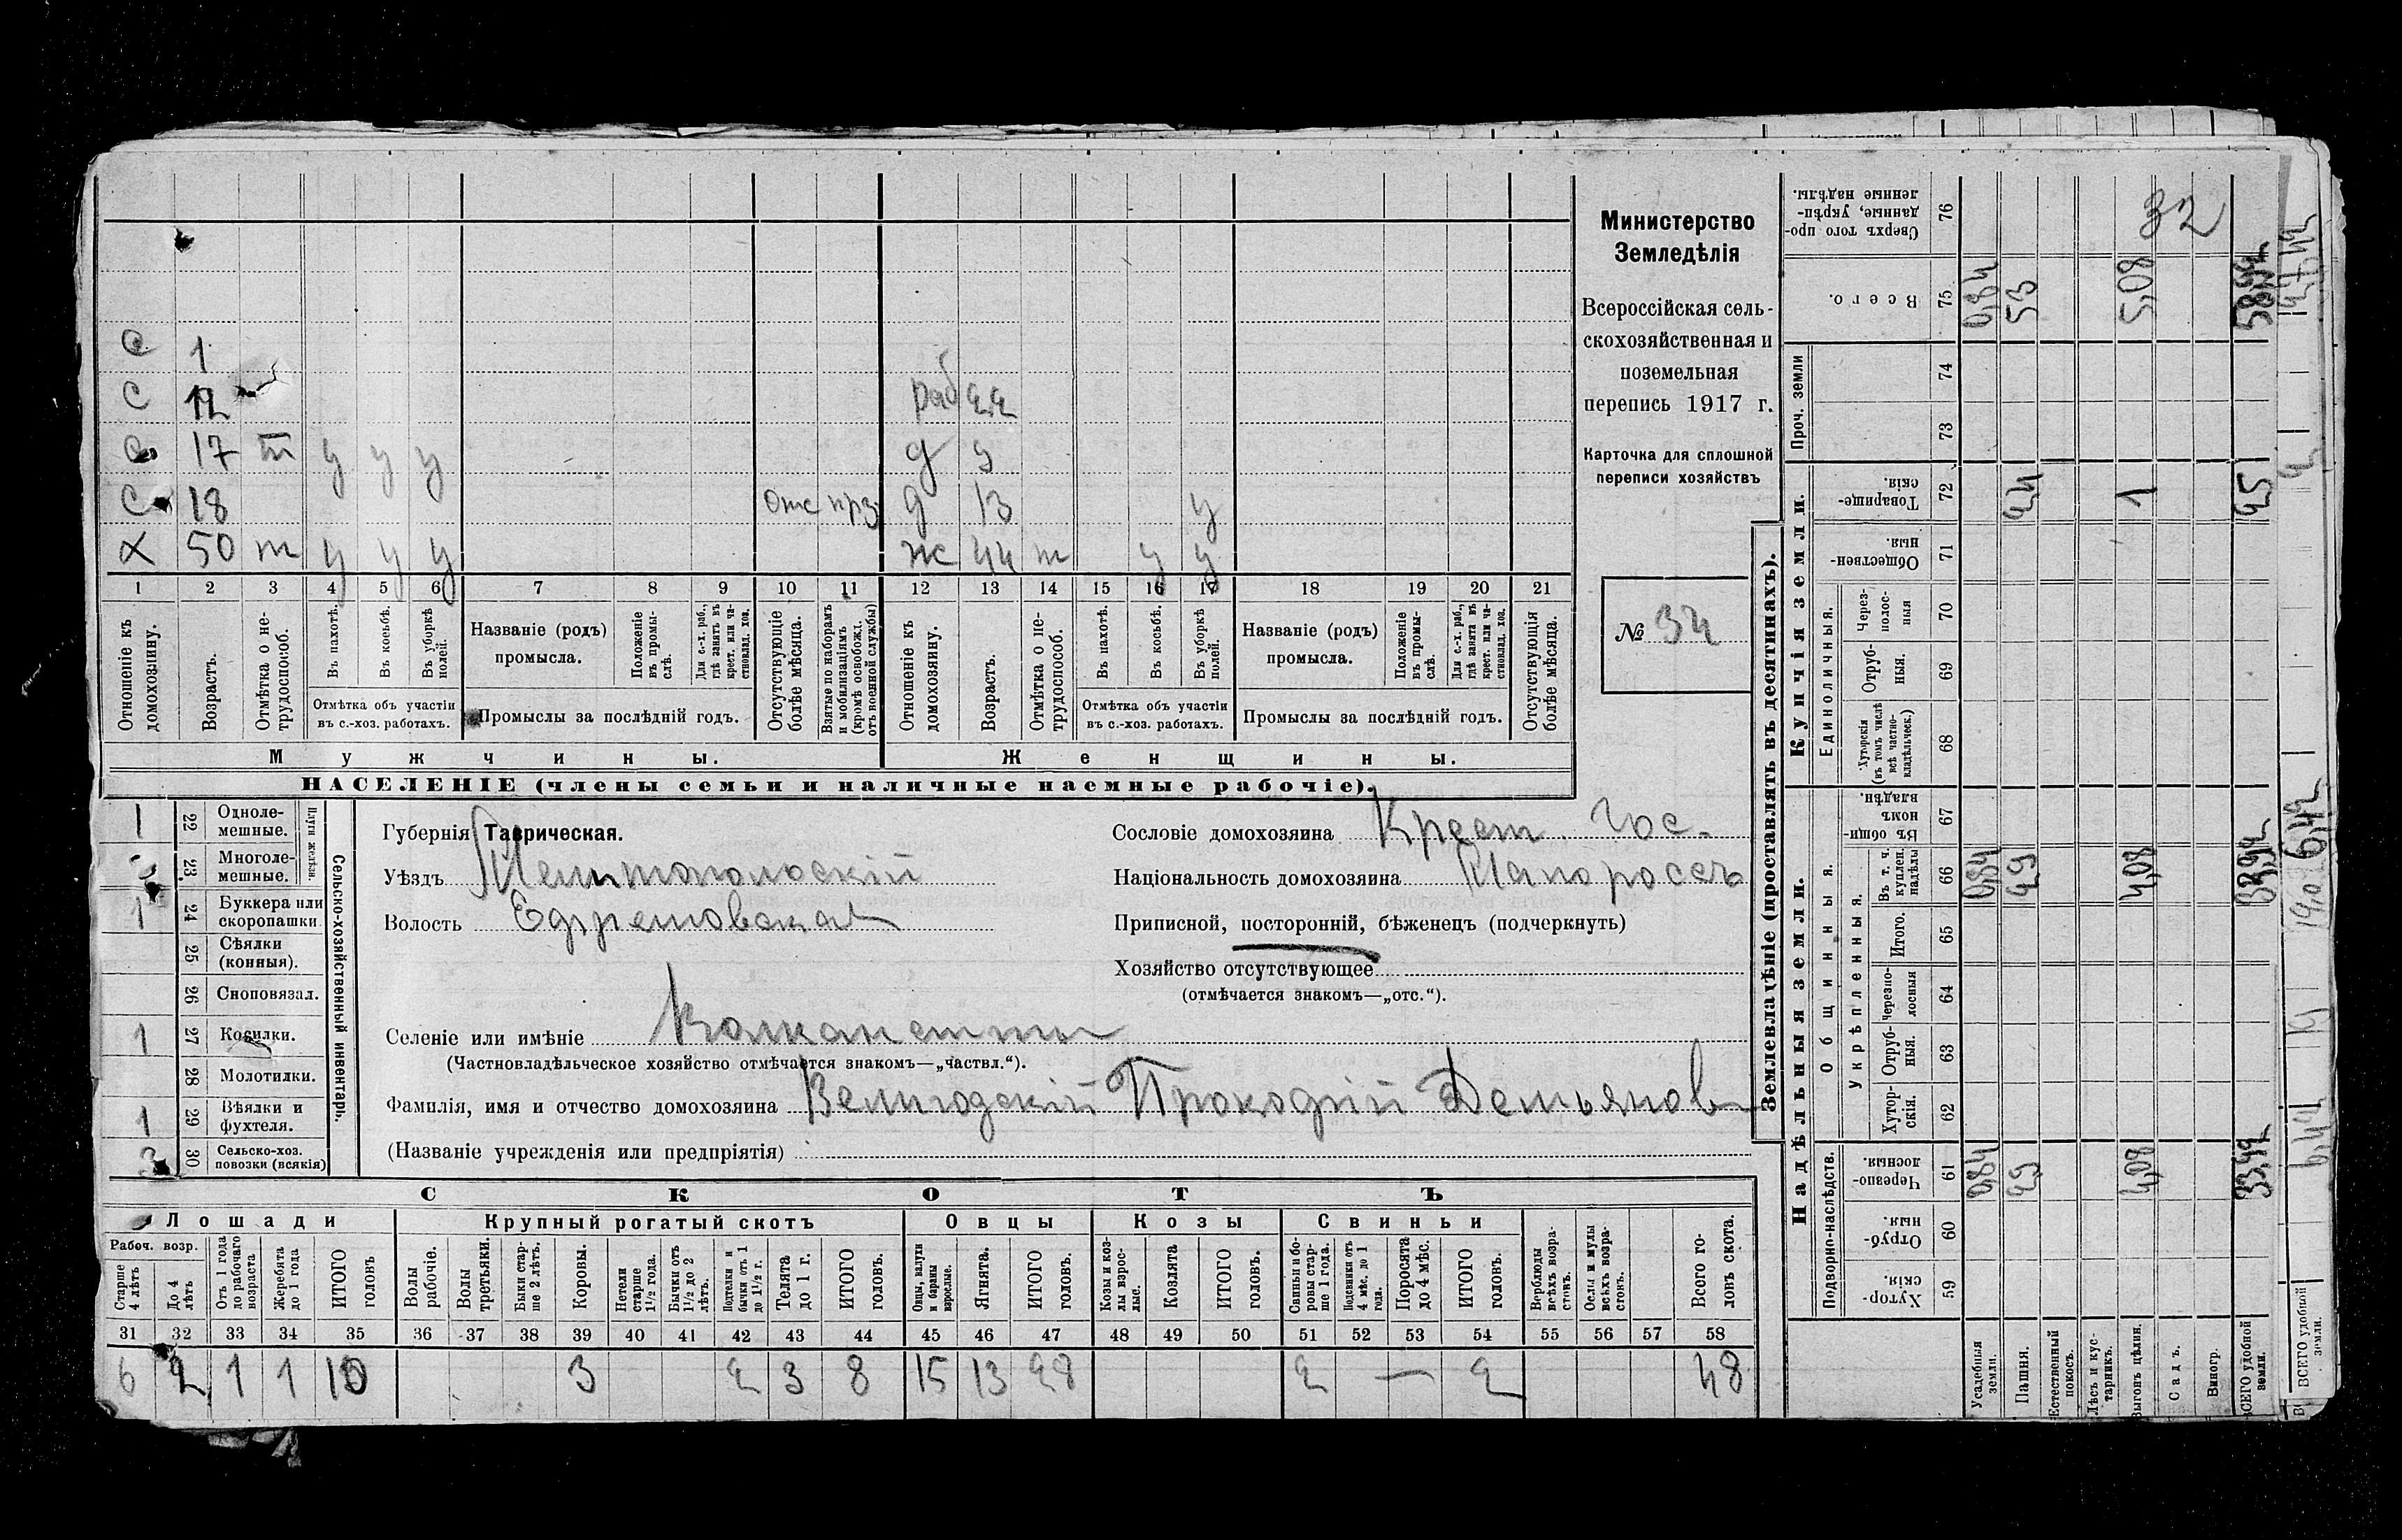 С 1
С 12 раб 22
С 17 т у у у д 9
С 18 отс прз д 13 у
Х 50 т у у у ж 44 т у у
1 2 3 4 5 6 7 8 9 10 11 12 13 14 15 16 17 18 19 20 21
Отношеніе къ домохозяину.
Возрастъ.
Отмѣтка о не-трудоспособ.
Въ пахотѣ.
Въ косьбѣ.
Въ уборкѣ полей.
Отмѣтка объ участіи въ с.-хоз. работахъ.
Названіе (родъ) промысла.
Положеніе въ промы-слѣ.
Для с.-х. раб., гдѣ занятъ въ крест. или ча-стновлад. хоз.
Промыслы за послѣдній годъ.
Отсутствующіе болѣе мѣсяца.
Взятые по наборамъ и мобилизаціямъ (кромѣ освобожд. отъ военной службы)
Отношеніе къ домохозяину.
Возрастъ.
Отмѣтка о не-трудоспособ.
Въ пахотѣ.
Въ косьбѣ.
Въ уборкѣ полей.
Отмѣтка объ участіи въ с.-хоз. работахъ.
Названіе (родъ) промысла.
Положеніе въ промы-слѣ.
Для с.-х. раб., гдѣ занята въ крест. или ча-стновлад. хоз.
Промыслы за послѣдній годъ.
Отсутствующія болѣе мѣсяца.
Мужчины. Женщины.
НАСЕЛЕНІЕ (члены семьи и наличные наемные рабочіе).
Министерство
Земледѣлія
Всероссійская сель-
скохозяйственная и
поземельная
перепись 1917 г.
Карточка для сплошной
переписи хозяйствъ
№ 34
1 22 Одноле-мешные.
23. Многоле-мешные.
Плуги желѣзн.
1 24 Буккера или скоропашки
25 Сѣялки (конныя).
26 Сноповязал.
1 27 Косилки.
28 Молотилки.
1 29 Вѣялки и фухтеля.
3 30 Сельско-хоз. повозки (всякія)
Сельско-хозяйственный инвентарь.
Губернія Таврическая.
Уѣздъ Мелитопольскій
Волость Ефремовская
Сословіе домохозяина Крест. Гос.
Національность домохозяина Малороссъ
Приписной, посторонній, бѣженецъ (подчеркнуть)
Хозяйство отсутствующее
(отмѣчается знакомъ—„отс.“).
Селеніе или имѣніе
(Частновладѣльческое хозяйство отмѣчается знакомъ—„частвл.“).
Фамилія, имя и отчество домохозяина Велигодскій Прокофій Демьянов
(Названіе учрежденія или предпріятія)
СКОТЪ
Лошади Крупный рогатый скотъ Овцы Козы Свиньи
Рабоч. возр.
Старше 4 лѣтъ
До 4 лѣтъ
Отъ 1 года до рабочаго возраста
Жеребята до 1 года
ИТОГО головъ
Волы рабочіе.
Волы третьяки.
Быки стар-ше 2 лѣтъ.
Коровы.
Нетели старше 1½ года.
Бычки отъ 1½ до 2 лѣтъ.
Подтелки и бычки отъ 1 до 1½ г.
Телята до 1 г.
ИТОГО головъ.
Овцы, валухи и бараны взрослые.
Ягнята.
ИТОГО головъ.
Козы и коз-лы взрос-лые.
Козлята
ИТОГО головъ.
Свиньи и бо-ровы стар-ше 1 года.
Подсвинки отъ 4 мѣс. до 1 года.
Поросята до 4 мѣс.
ИТОГО головъ.
Верблюды всѣхъ возра-стовъ.
Ослы и мулы всѣхъ возра-стовъ.
Всего го-ловъ скота.
31 32 33 34 35 36 37 38 39 40 41 42 43 44 45 46 47 48 49 50 51 52 53 54 55 56 57 58
6 2 1 1 10 3 2 3 8 15 13 28 2 — 2 48
Землевладѣніе (проставлять въ десятинахъ).
Надѣльныя земли. Купчія земли. Проч. земли
Подворно-наслѣдств. Общинныя. Укрѣпленныя. Единоличныя.
Хутор-скія. 59
Отруб-ныя. 60
Черезпо-лосныя. 61
Хутор-скія. 62
Отруб-ныя. 63
Черезпо-лосныя 64
Итого. 65
Въ т. ч. куплен. надѣлы 66
Въ общин-номъ владѣн. 67
Хуторскія (въ томъ числѣ всѣ частно-владѣльческ.) 68
Отруб-ныя. 69
Через-полос-ныя 70
Обществен-ныя. 71
Товарище-скія. 72
73
74
Всего. 75
Сверхъ того про-данные, укрѣп-ленные надѣлы. 76
Усадебныя земли. 0,84 0,84 0,84
Пашня. 29 29 24 53
Естественный покосъ.
Лѣсъ и кус-тарникъ.
Выгонъ цѣлин. 4,08 4,08 1 5,08
32
Садъ.
Виногр.
ВСЕГО удобной земли. 25
ВСЕГО удобной земли.